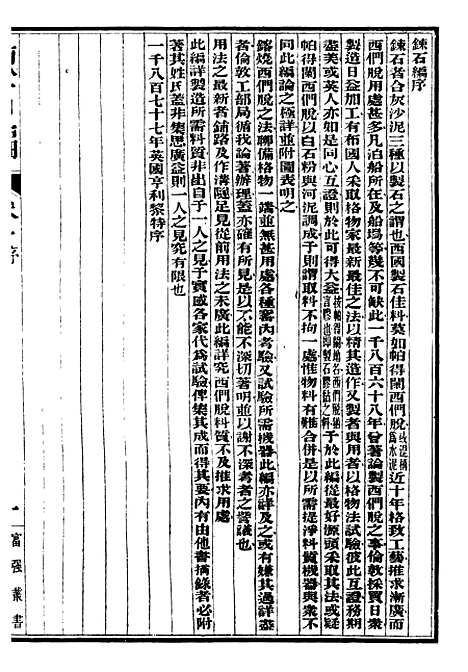 鍊石編序
鍊石者合灰沙泥三種以製石之謂也西國製石佳料莫如帕得蘭西們脫或混稱為水泥近十年格致工藝推求漸廣而
西們脫用處甚多凡泊船所在及船塢等幾不可缺此一千八百六十八年曾著論製西們脫之事倫敦採買日衆
製造日益加工有布國人采取格物家最新最佳之法以精其造作又製者與用者以格物法試驗彼此互證務期
盡美或英人亦如是同心互證則於此可得大益于於此編從最好源頭采取其法或疑
帕得蘭西們脫以白石粉與河泥調成于則謂取料不拘一處惟物料有難合併是以所需提淨料質機器與衆不
同此編論之極詳並附圖表明之
鎔燒西們脫之法聯備格物一端並無甚用處各種窰內考驗又試驗所需機器此編亦詳及之或有嫌其過詳盡
者倫敦工部局循我論著辦理蓋亦確有所見是以不能不深切著明並以謝不深考者之訾議也
用法之最新者鋪路及作溝隧足見從前用法之未廣此編詳究西們脫料質不及推求用處
此編詳製造所需料質非出自于一人之見于實感各家代為試驗俾集其成而得其要內有由他書摘錄者必附
著其姓氏蓋非集思廣益則一人之見究有限也
一千八百七十七年英國亨利黎特序
一
富強叢書